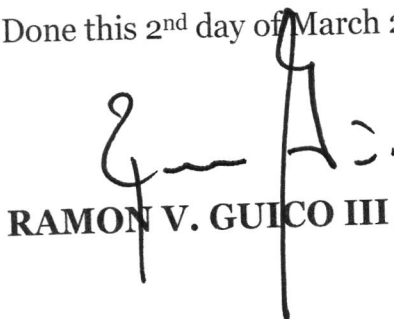 Done this 2nd day of March
RAMON V. GUICO III